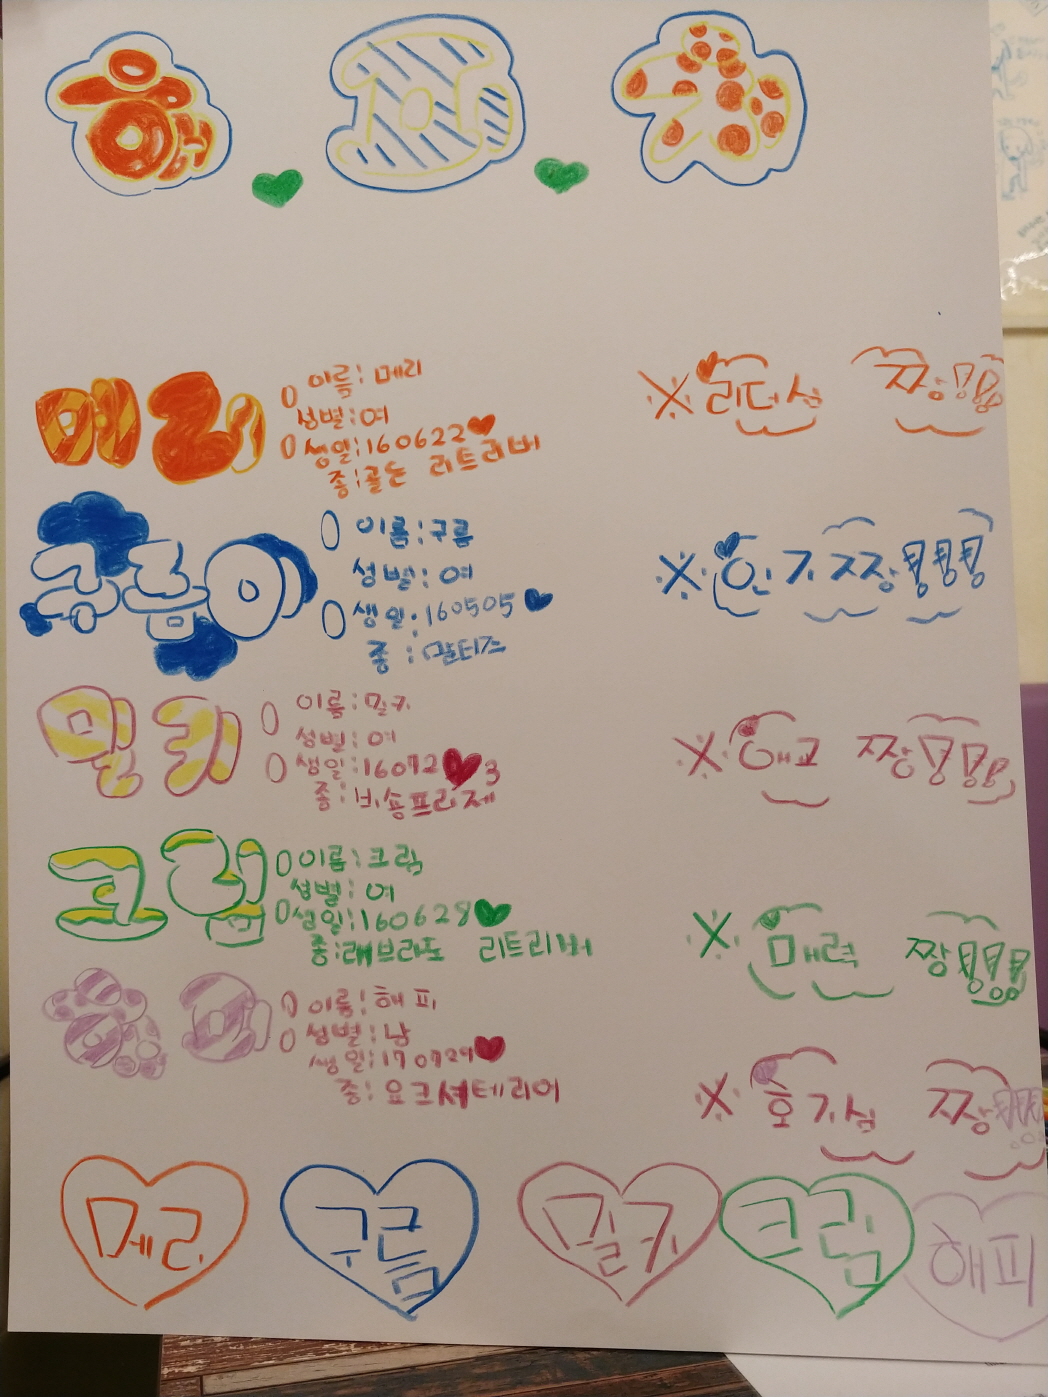 메리
이름: 메리
성별: 여
생일: 160622
종: 골든 리트리버
※ 리더십 짱
구름이
이름: 구름
성별: 여
생일: 160505
종: 말티즈
※ 인기 짱
밀키
이름: 밀키
성별: 여
생일: 160723
종: 비숑프리제
※ 애교 짱
크림
이름: 크림
성별: 여
생일: 160628
종: 래브라도 리트리버
※ 매력 짱
해피
이름: 해피
성별: 남
생일: 170729
종: 요크셔테리어
※ 호기심 짱
메리 구름 밀키 크림 해피